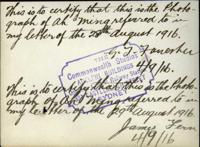 This is to certify that this is the Photo-
graph of Ah Ming referred to in
my letter of the 29th August 1916.
4/9/16
THE
Commonwealth Studios
BUILDINGS
SYDNEY
This is to certify that this is the Photo-
graph of Ah Ming referred to in
my letter of the 29th August 1916.
James Fern
4/9/16